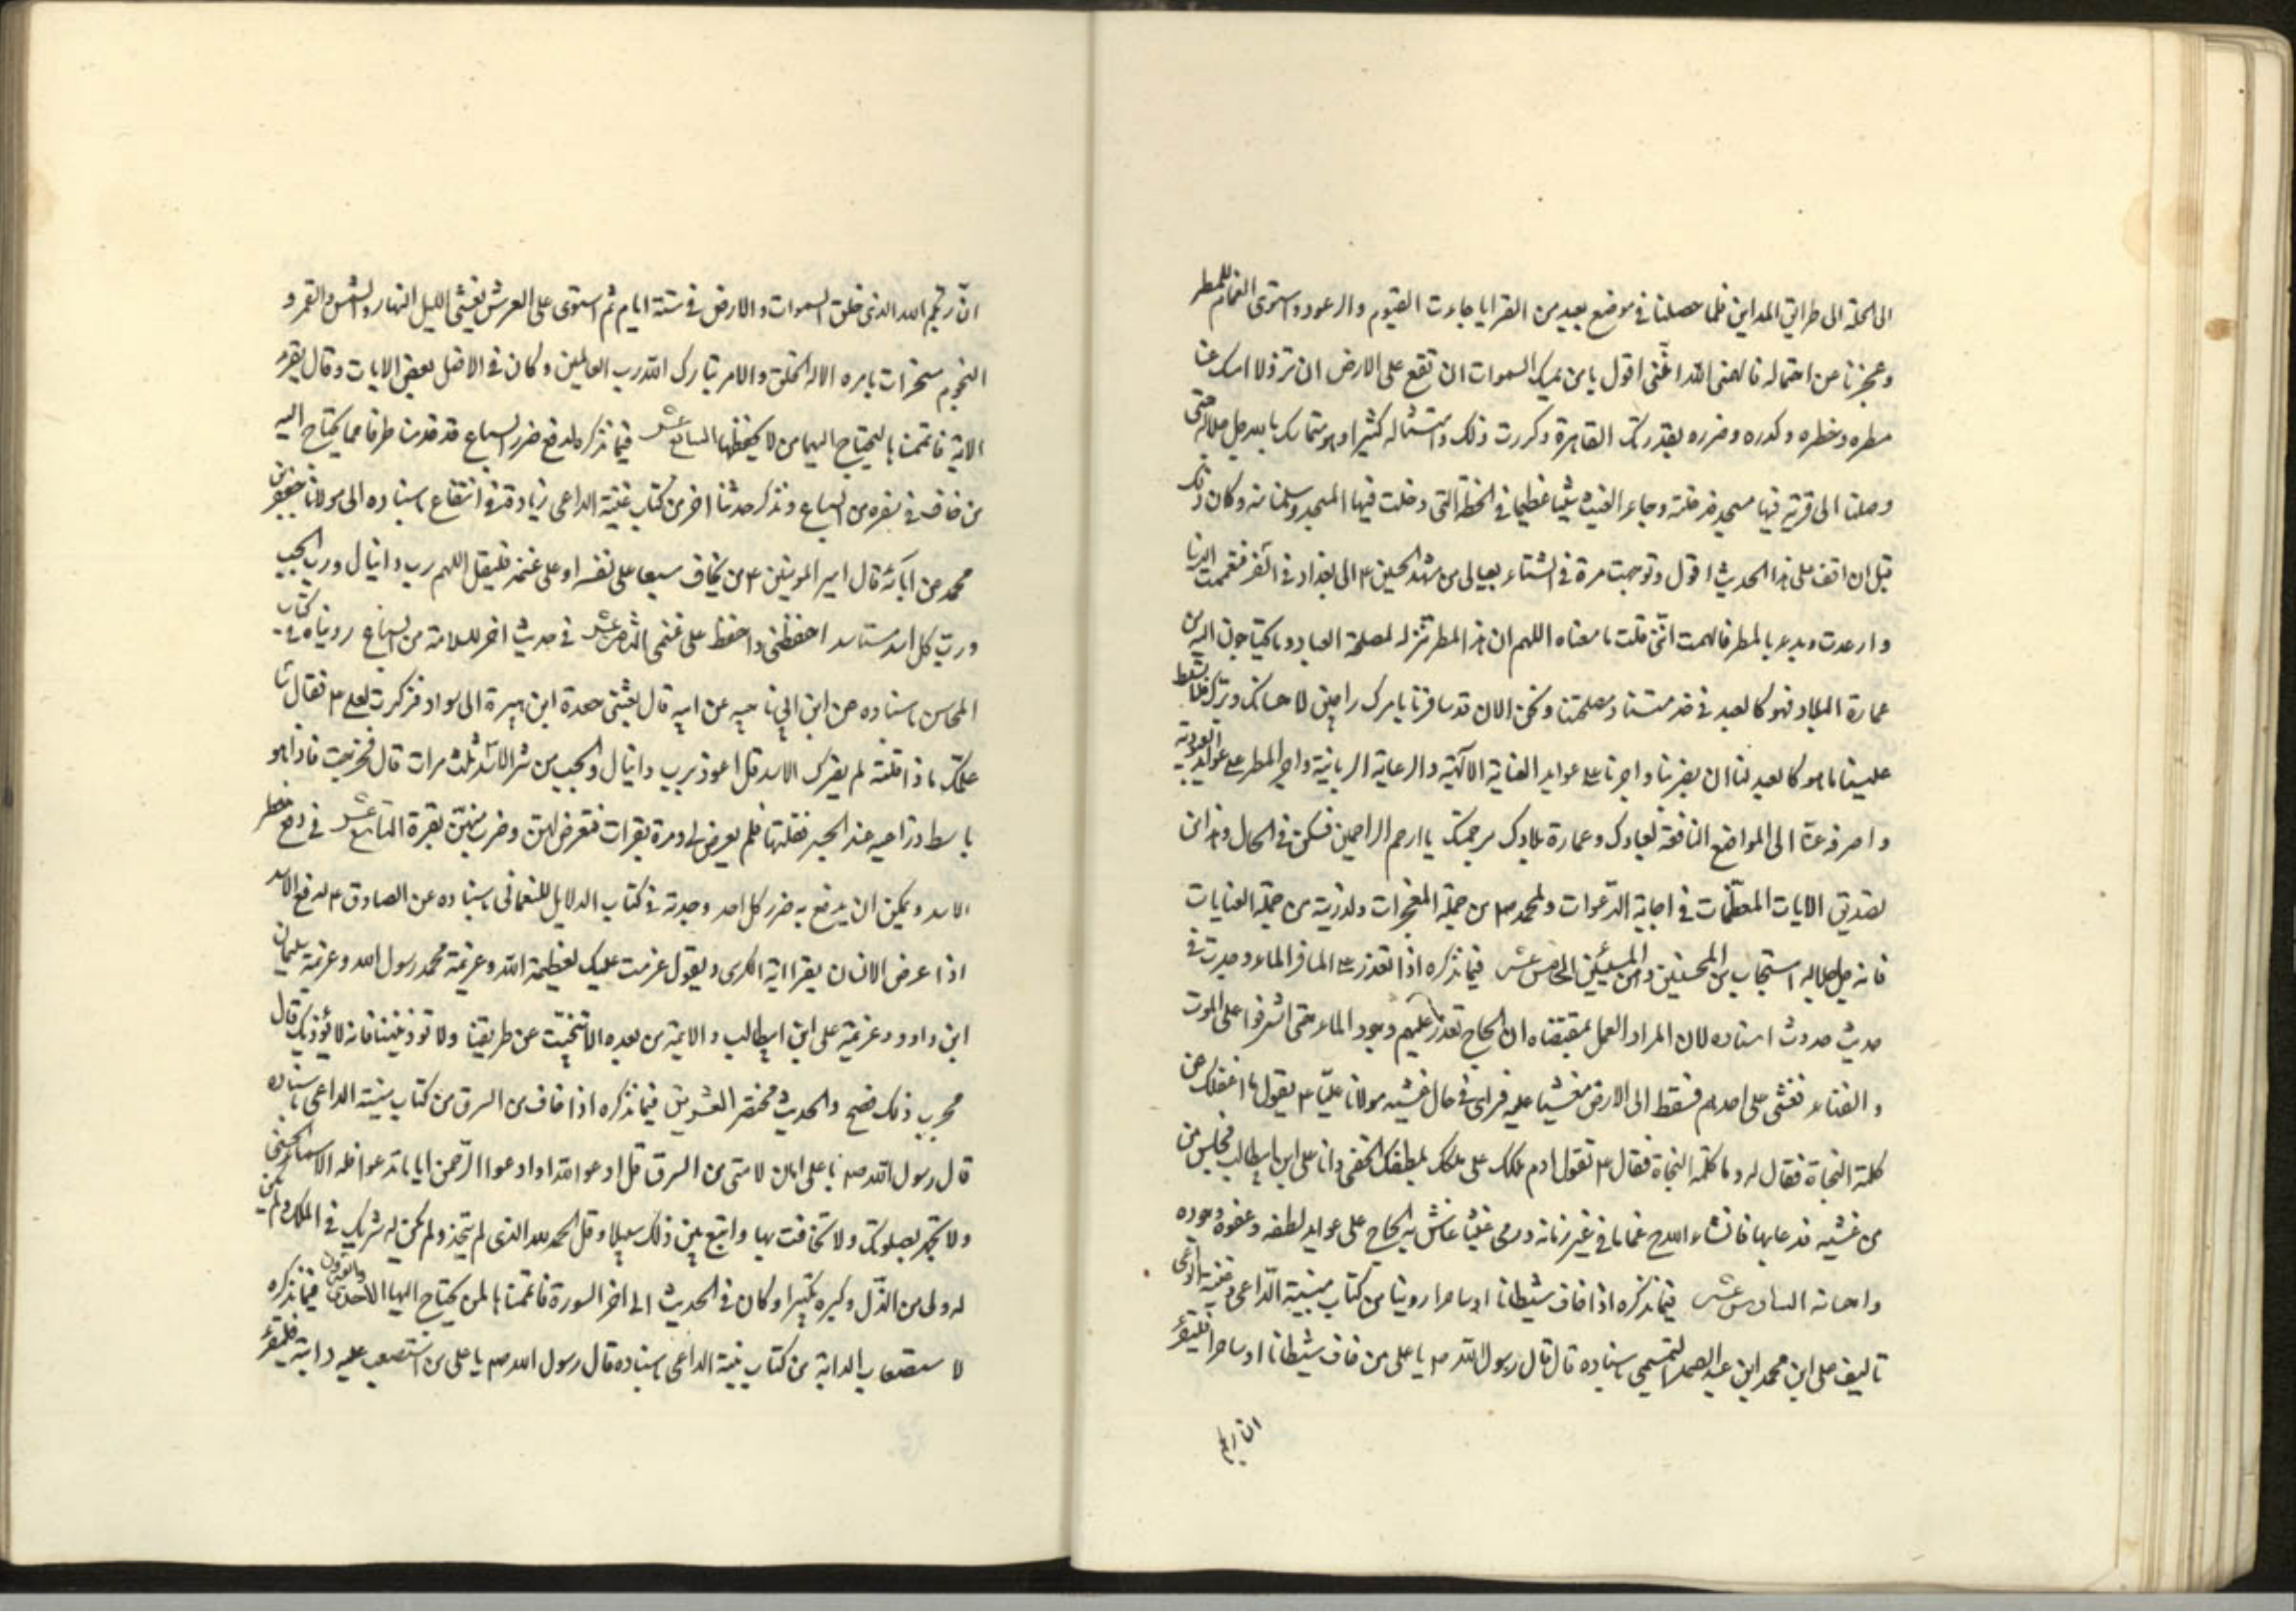 الى الحلة الى طرايق المداين فلما حصلنا في موضع بعيد من القرايا جاءت الغيوم والرعود واستوى الغمام للمطر
وعجزنا عن احتماله فالهمنى الله اننى اقول يا من يمسك السموات ان تقع على الارض ان تزولا امسك عنا
مطره وخطره وكدره وضرره بقدرتك القاهرة وكررت ذلك وامثاله كثيرا وهو متماسك بالله جل جلاله حتى
وصلنا الى قرية فيها مسجد فدخلته وجاء الغيث شيئا عظيما في اللحظة التى دخلت فيها المسجد وسلمنا منه وكان ذلك
قبل ان اقف على هذا الحديث اقول وتوجهت مرة في الشتاء بعيالى من مشهد الحسين ع الى بغداد في السفر فتغيمت الدنيا
وارعدت وبدء بالمطر فالهمت اننى قلت ما معناه اللهم ان هذا المطر تنزله لمصلحة العباد وما يحتاجون اليه من
عمارة البلاد فهو كالعبد في خدمتنا ومصلحتنا ونحن الان قد سافرنا بامرك راجين لاحسانك وبرك فلا تسلط
علينا ما هو كالعبد لنا ان يضر بنا واجرنا على عوايد العناية الالهية والرعاية الربانية واجر المطر على عوايد العبودية
واصرفه عنا الى المواضع النافعة لعبادك وعمارة بلادك برحمتك يا ارحم الراحمين فسكن في الحال وهذا من
تصديق الايات المعظمات في اجابة الدعوات ولمحمد ص من جملة المعجزات ولذريته من جملة العنايات
فانه جل جلاله استجاب من المحسنين ومن المسيئين الخامس عشر فيما نذكره اذا تعذر على المسافر الماء وجدت في
حديث حدوث اسناده لان المراد العمل بمقتضاه ان الحاج تعذر عليهم وجود الماء حتى اشرفوا على الموت
والفناء فغشى على احدهم فسقط الى الارض مغشيا عليه فراى في حال غشيه مولانا عليا ع يقول ما اغفلك عن
كلمة النجاة فقال له وما كلمة النجاة فقال ع تقول ادم ملكك على ملكك بلطفك الخفى وانا على ابن ابيطالب فجلس من
من غشيه فدعا بها فانشاء الله ج غماما في غير زمانه ورمى غيثا عاش به الحاج على عوايد لطفه وعفوه وجوده
واحسانه السادس عشر فيما نذكره اذا خاف شيطانا او ساحرا روينا من كتاب منية الداعى وغنية الواعى
تاليف على ابن محمد ابن عبد الصمد التميمى باسناده قال قال رسول الله ص يا على من خاف شيطانا او ساحرا فليقرء
ان ربكم
ان ربكم الله الذى خلق السموات والارض في ستة ايام ثم استوى على العرش يغشى الليل النهار والشمس والقمر و
النجوم مسخرات بامره الا له الخلق والامر تبارك الله رب العالمين وكان في الاصل بعض الايات وقال يقرء
الاية فاتممنا ها ليحتاج اليها من لا يحفظها السابع عشر فيما نذكره لدفع ضرر السباع قد قدمنا طرفا مما يحتاج اليه
من خاف في سفره من السباع ونذكر حديثا اخر من كتاب غنية الداعى زيادة في انتفاع باسناده الى مولانا جعفر بن
محمد عن ابائه قال امير المومنين ع من يخاف سبعا على نفسه او على غنمه فليقل اللهم رب دانيال ورب الجب
ورب كل اسد مستاسد احفظنى واحفظ على غنمى الثامن عشر في حديث اخر للسلامة من السباع رويناه في كتاب
المحاسن باسناده عن ابن ابي ناجيه عن ابيه قال بعثنى جعدة ابن هبيرة الى سوراد فذكرت لعلى ع فقال سا
علمك ماذا قلته لم يضرك الاسد قل اعوذ برب دانيال والجب من شر الاسد ثلث مرات قال فخرجت فاذا هو
باسط ذراعيه عند الجسر فقلتها فلم يعرض لى ومرة بقرات فتعرض لهن وضرب منهن بقرة التاسع عشر في دفع خطر
الاسد ويمكن ان يدفع به ضرر كل احد وجدته في كتاب الدلايل للنعمانى باسناده عن الصادق ع لدفع الاسد
اذا عرض الانسان يقرا اية الكرى ويقول عزمت عليك بعظيمة الله وعزيمة محمد رسول الله وعزيمة سليمان
ابن داود وعزيمة على ابن ابيطالب والايمة من بعده الا تنحيت عن طريقنا ولا توذيننا فانه لا يؤذيك قال
مجرب ذلك فصح والحديث مختصر العشرين فيما نذكره اذا خاف من السرق من كتاب منية الداعى باسناده
قال رسول الله ص يا على امان لامتى من السرق قل ادعو الله او ادعوا الرحمن ايا ما تدعوا فله الاسماء الحسنى
ولا تجهر بصلوتك ولا تخافت بها وابتغ بين ذلك سبيلا وقل الحمد لله الذى لم يتخذ ولم يكن له شريك في الملك ولم يكن
له ولى من الذل وكبره تكبيرا وكان في الحديث الى اخر السورة فاتممنا ها لمن يحتاج اليها الاحدى والعشرون فيما نذكره
لاستصعاب الدابة من كتاب منية الداعى باسناده قال رسول الله ص يا على من استصعب عليه دابته فليقرء